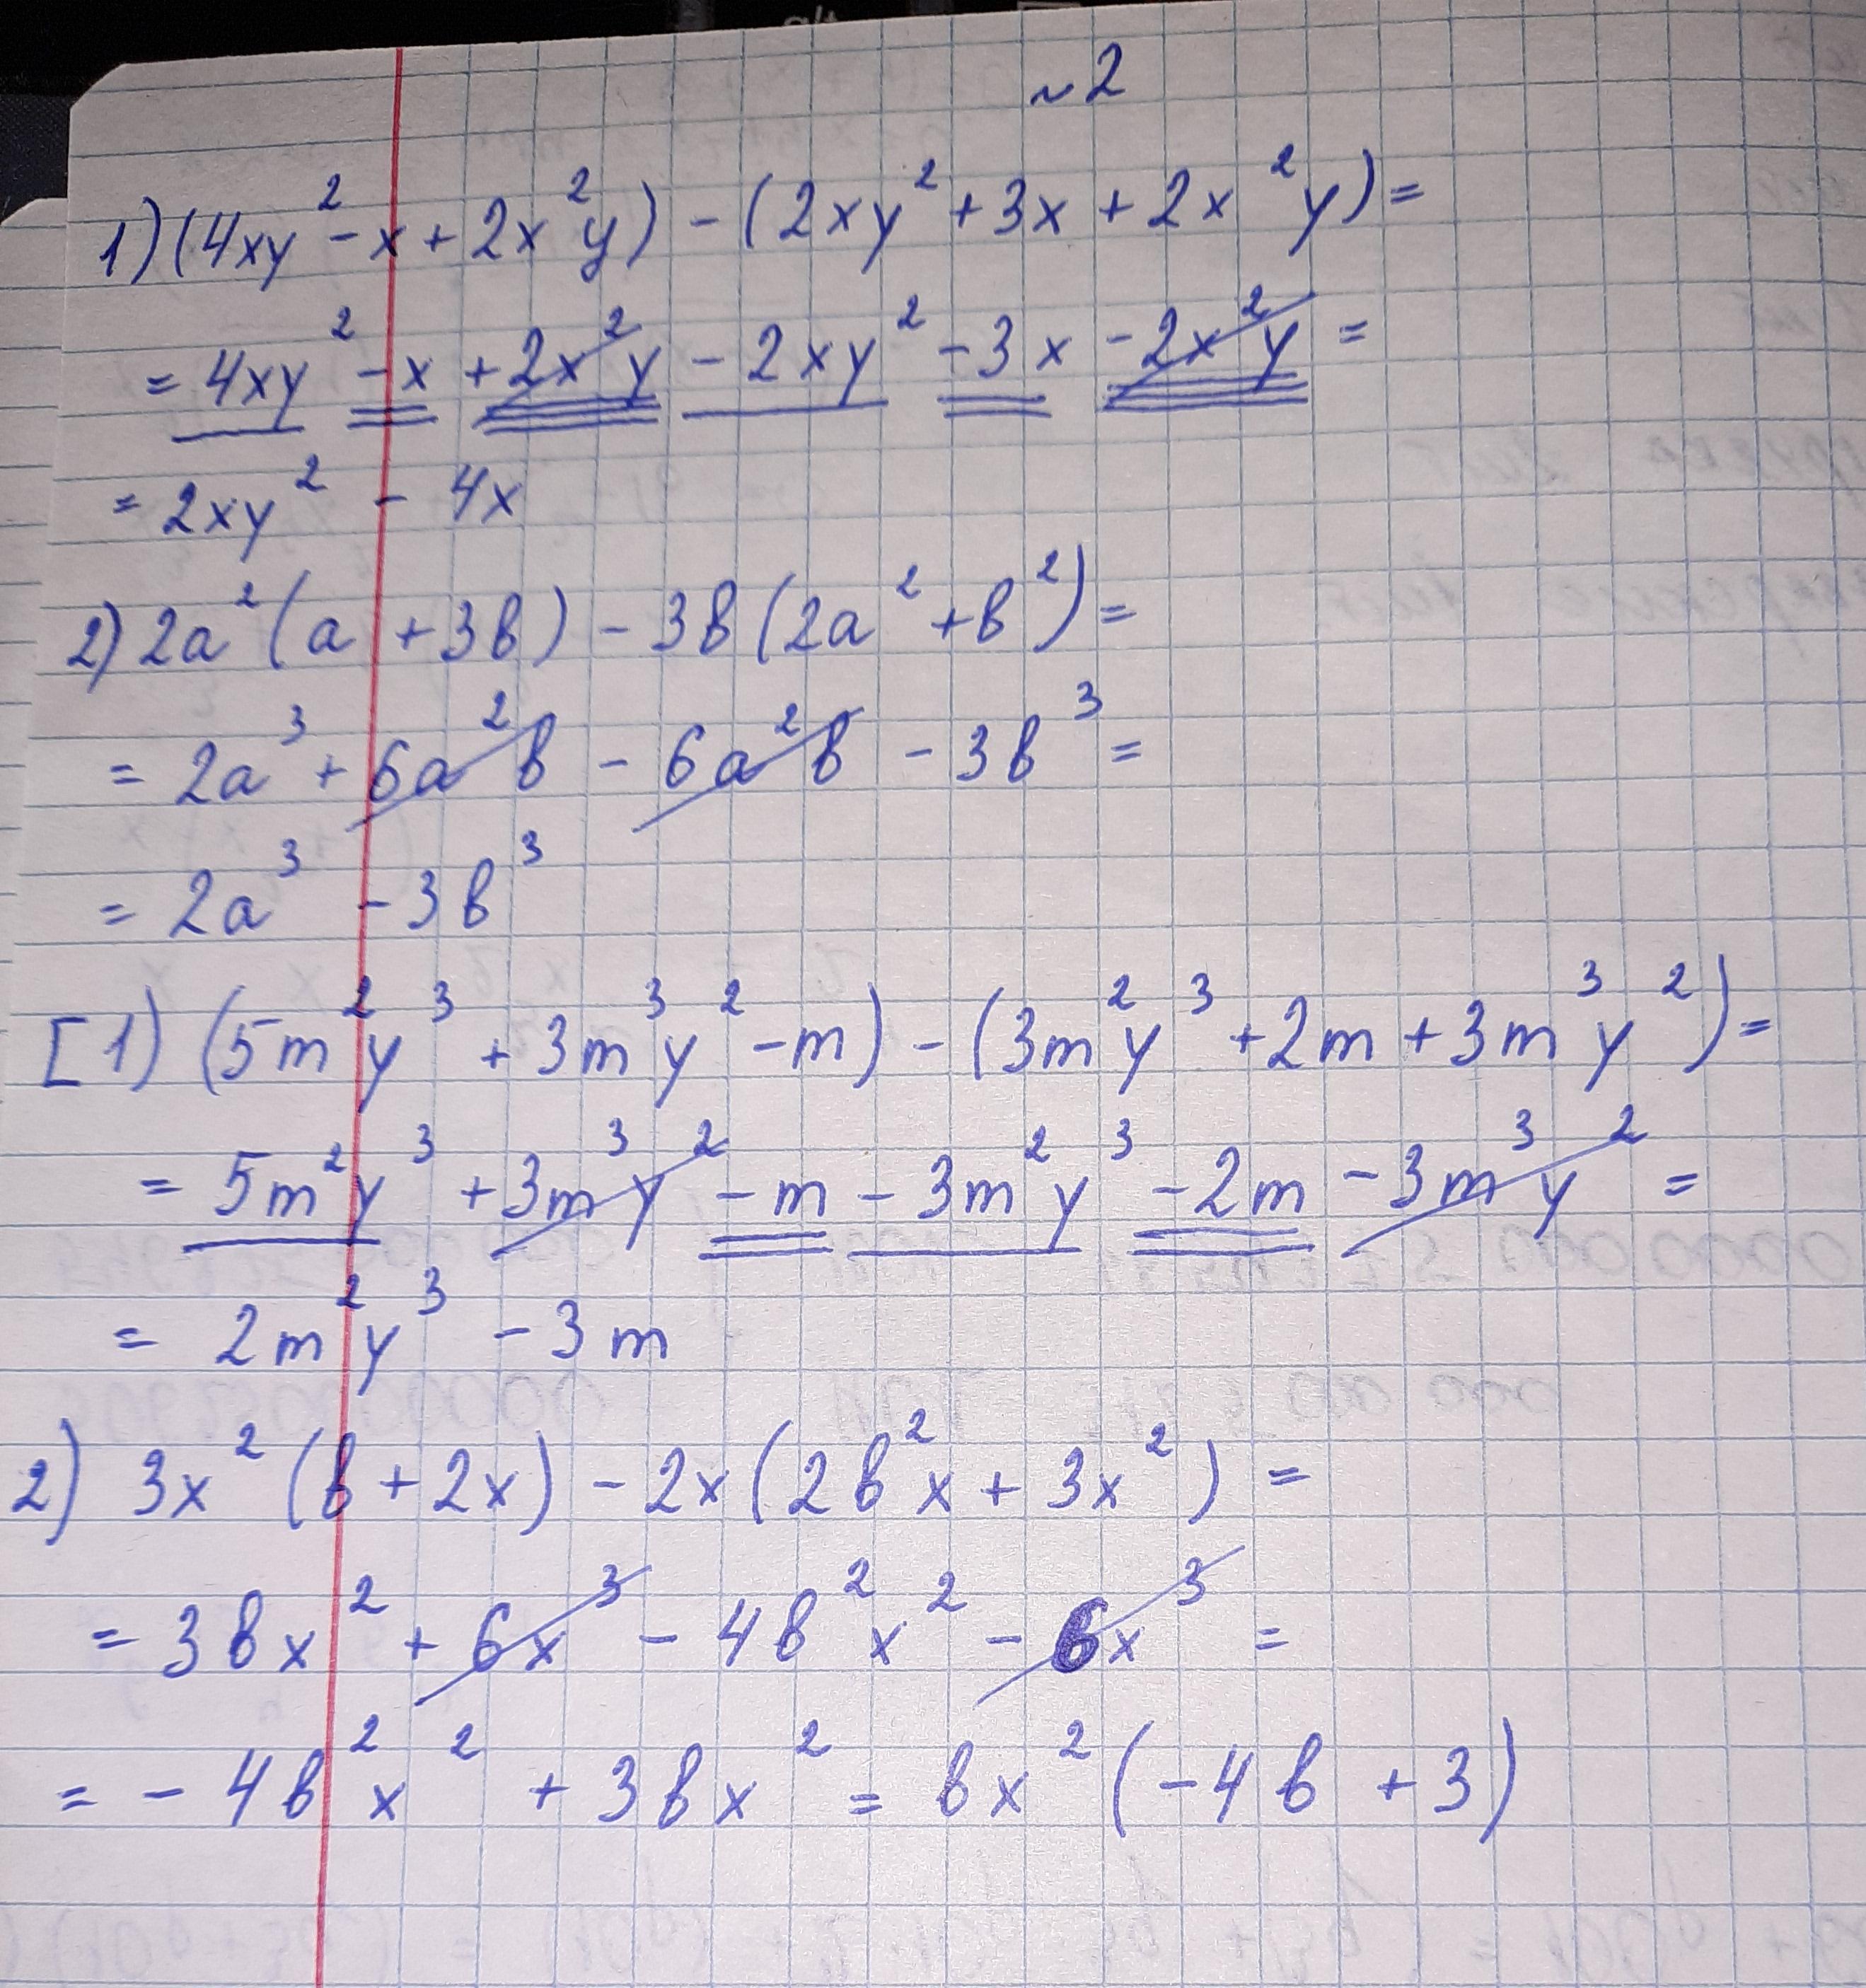 ~2
1) (4xy² - x + 2x²y) - (2xy² + 3x + 2x²y) =
= 4xy² - x + 2x²y - 2xy² - 3x - 2x²y =
= 2xy² - 4x
2) 2a²(a + 3в) - 3в(2a² + в²) =
= 2a³ + 6a²в - 6a²в - 3в³ =
= 2a³ - 3в³
[1) (5m²y³ + 3m³y² - m) - (3m²y³ + 2m + 3m³y²) =
= 5m²y³ + 3m³y² - m - 3m²y³ - 2m - 3m³y² =
= 2m²y³ - 3m
2) 3x²(в + 2x) - 2x(2в²x + 3x²) =
= 3вx² + 6x³ - 4в²x² - 6x³ =
= - 4в²x² + 3вx² = вx²(-4в + 3)